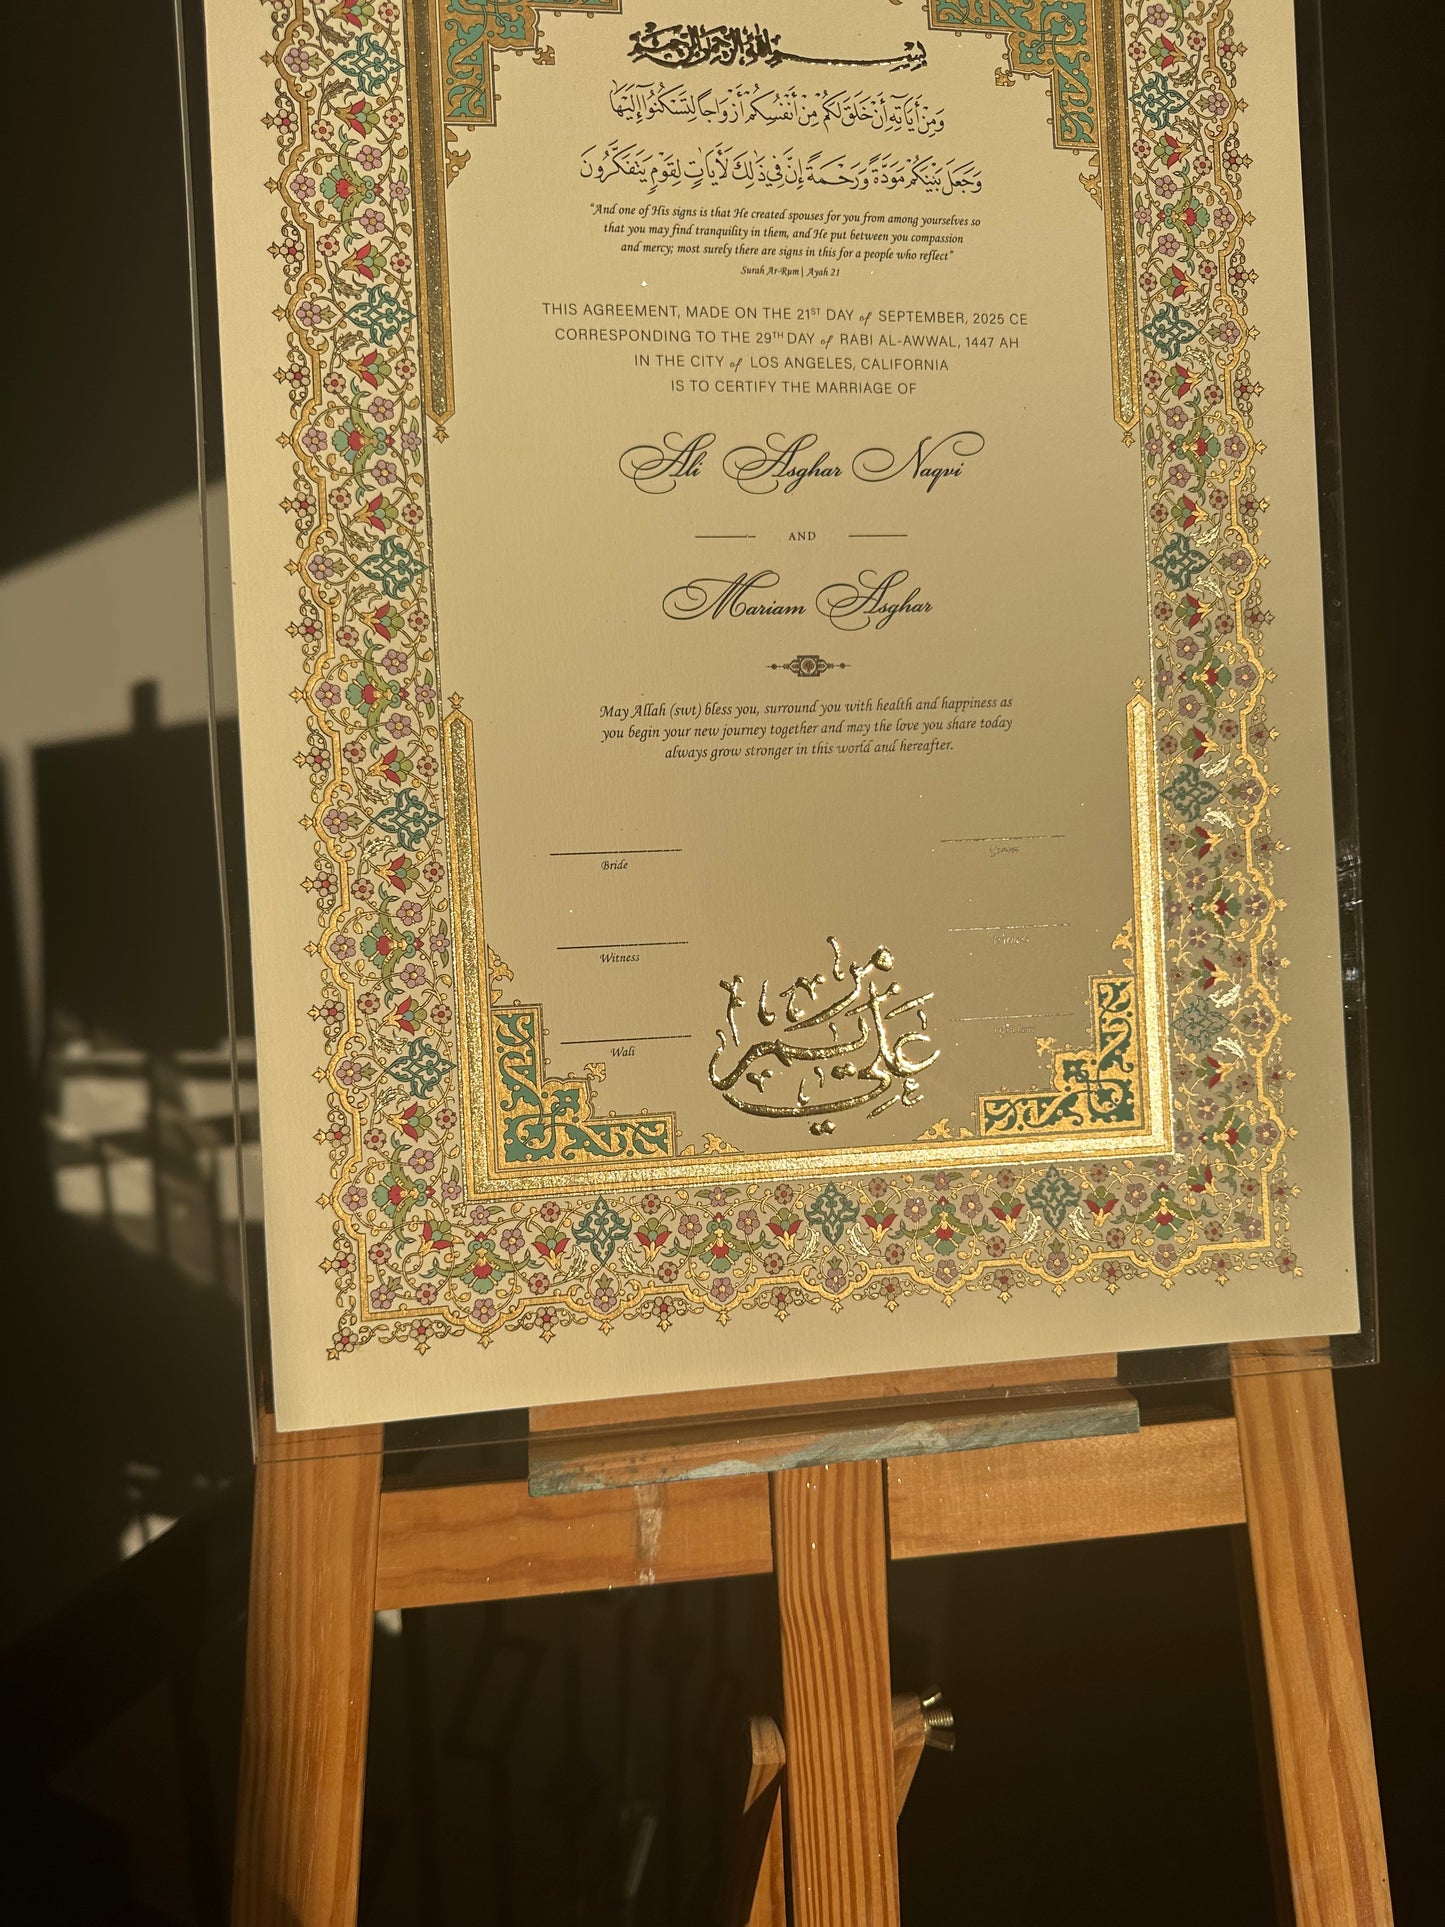 بسم الله الرحمن الرحيم
وَمِنْ أَيَاتِهِ أَنْ خَلَقَ لَكُم مِنْ أَنْفُسِكُمْ أَزْوَاجًا لِتَسْكُنُوا إِلَيْهَا
وَجَعَلَ بَيْنَكُمْ مَوَدَّةً وَرَحْمَةً إِنَّ فِي ذَٰلِكَ لَأَيَاتٍ لِقَوْمٍ يَتَفَكَّرُونَ
"And one of His signs is that He created spouses for you from among yourselves so
that you may find tranquility in them, and He put between you compassion
and mercy; most surely there are signs in this for a people who reflect"
Surah Ar-Rum | Ayah 21
THIS AGREEMENT, MADE ON THE 21ST DAY of SEPTEMBER, 2025 CE
CORRESPONDING TO THE 29TH DAY of RABI AL-AWWAL, 1447 AH
IN THE CITY of LOS ANGELES, CALIFORNIA
IS TO CERTIFY THE MARRIAGE OF
Ali Asghar Naqvi
AND
Mariam Asghar
May Allah (swt) bless you, surround you with health and happiness as
you begin your new journey together and may the love you share today
always grow stronger in this world and hereafter.
Bride Groom
Witness Witness
Wali